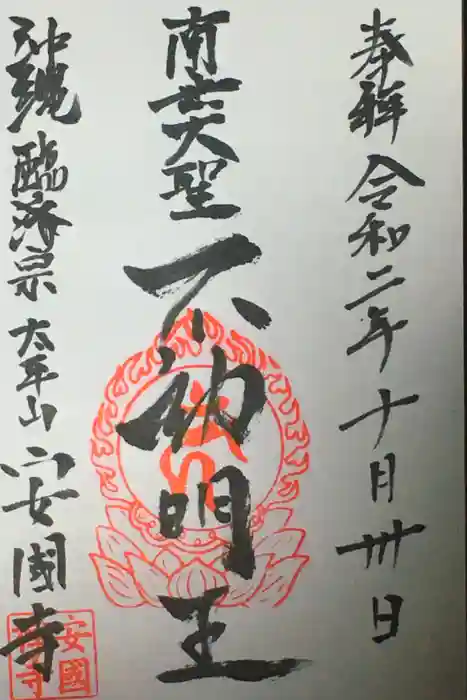 奉拝 令和二年十月卅日
南無大聖 不動明王
沖縄 臨済宗 太平山 安國寺
安國禅寺